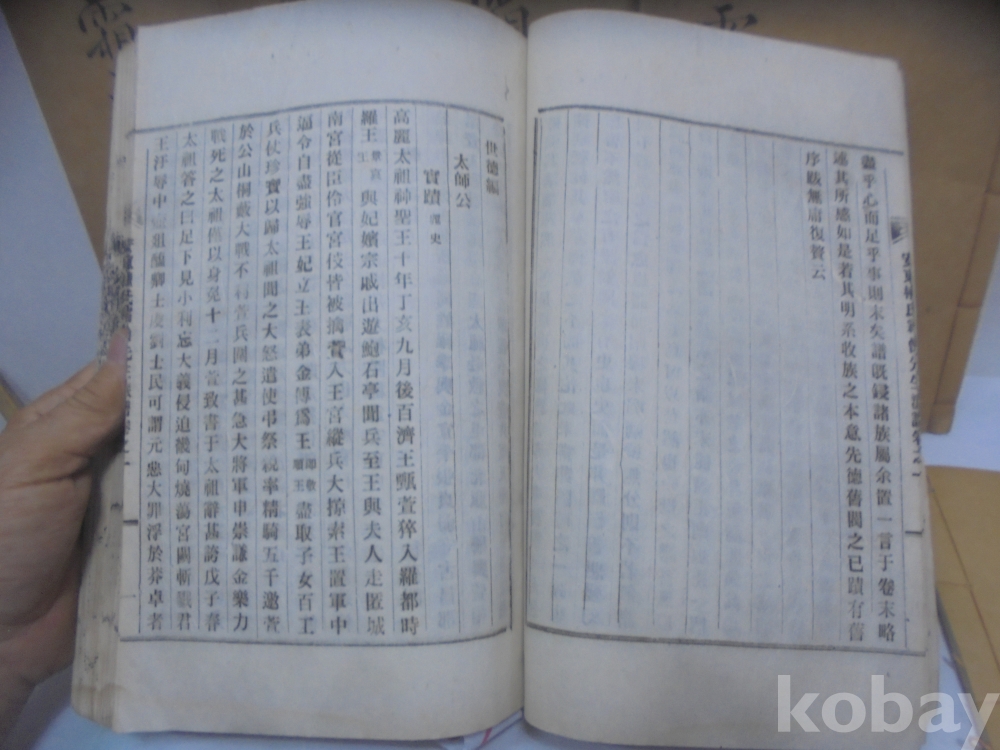 霜
蘊乎心而足乎事則末矣譜既鋟諸族屬余置一言于卷末略
述其所感如是若其明系收族之本意先德舊閥之已蹟有舊
序跋無庸復贅云
世德編
太師公
實蹟 麗史
高麗太祖神聖王十年丁亥九月後百濟王甄萱猝入羅都時
羅王 景哀王 與妃嬪宗戚出遊鮑石亭聞兵至王與夫人走匿城
南宮從臣伶官宮伎皆被擄萱入王宮縱兵大掠索王置軍中
逼令自盡強辱王妃立王表弟金傅爲王 即敬順王 盡取子女百工
兵仗珍寶以歸太祖聞之大怒遣使弔祭親率精騎五千邀萱
於公山桐藪大戰不利萱兵圍之甚急大將軍申崇謙金樂力
戰死之太祖僅以身免十二月萱致書于太祖辭甚誇戊子春
太祖答之曰足下見小利忘大義侵迫畿甸燒蕩宮闕斬戮君
王汙辱中 俎醢卿士虔劉士民可謂元惡大罪浮於莽卓者
kobay